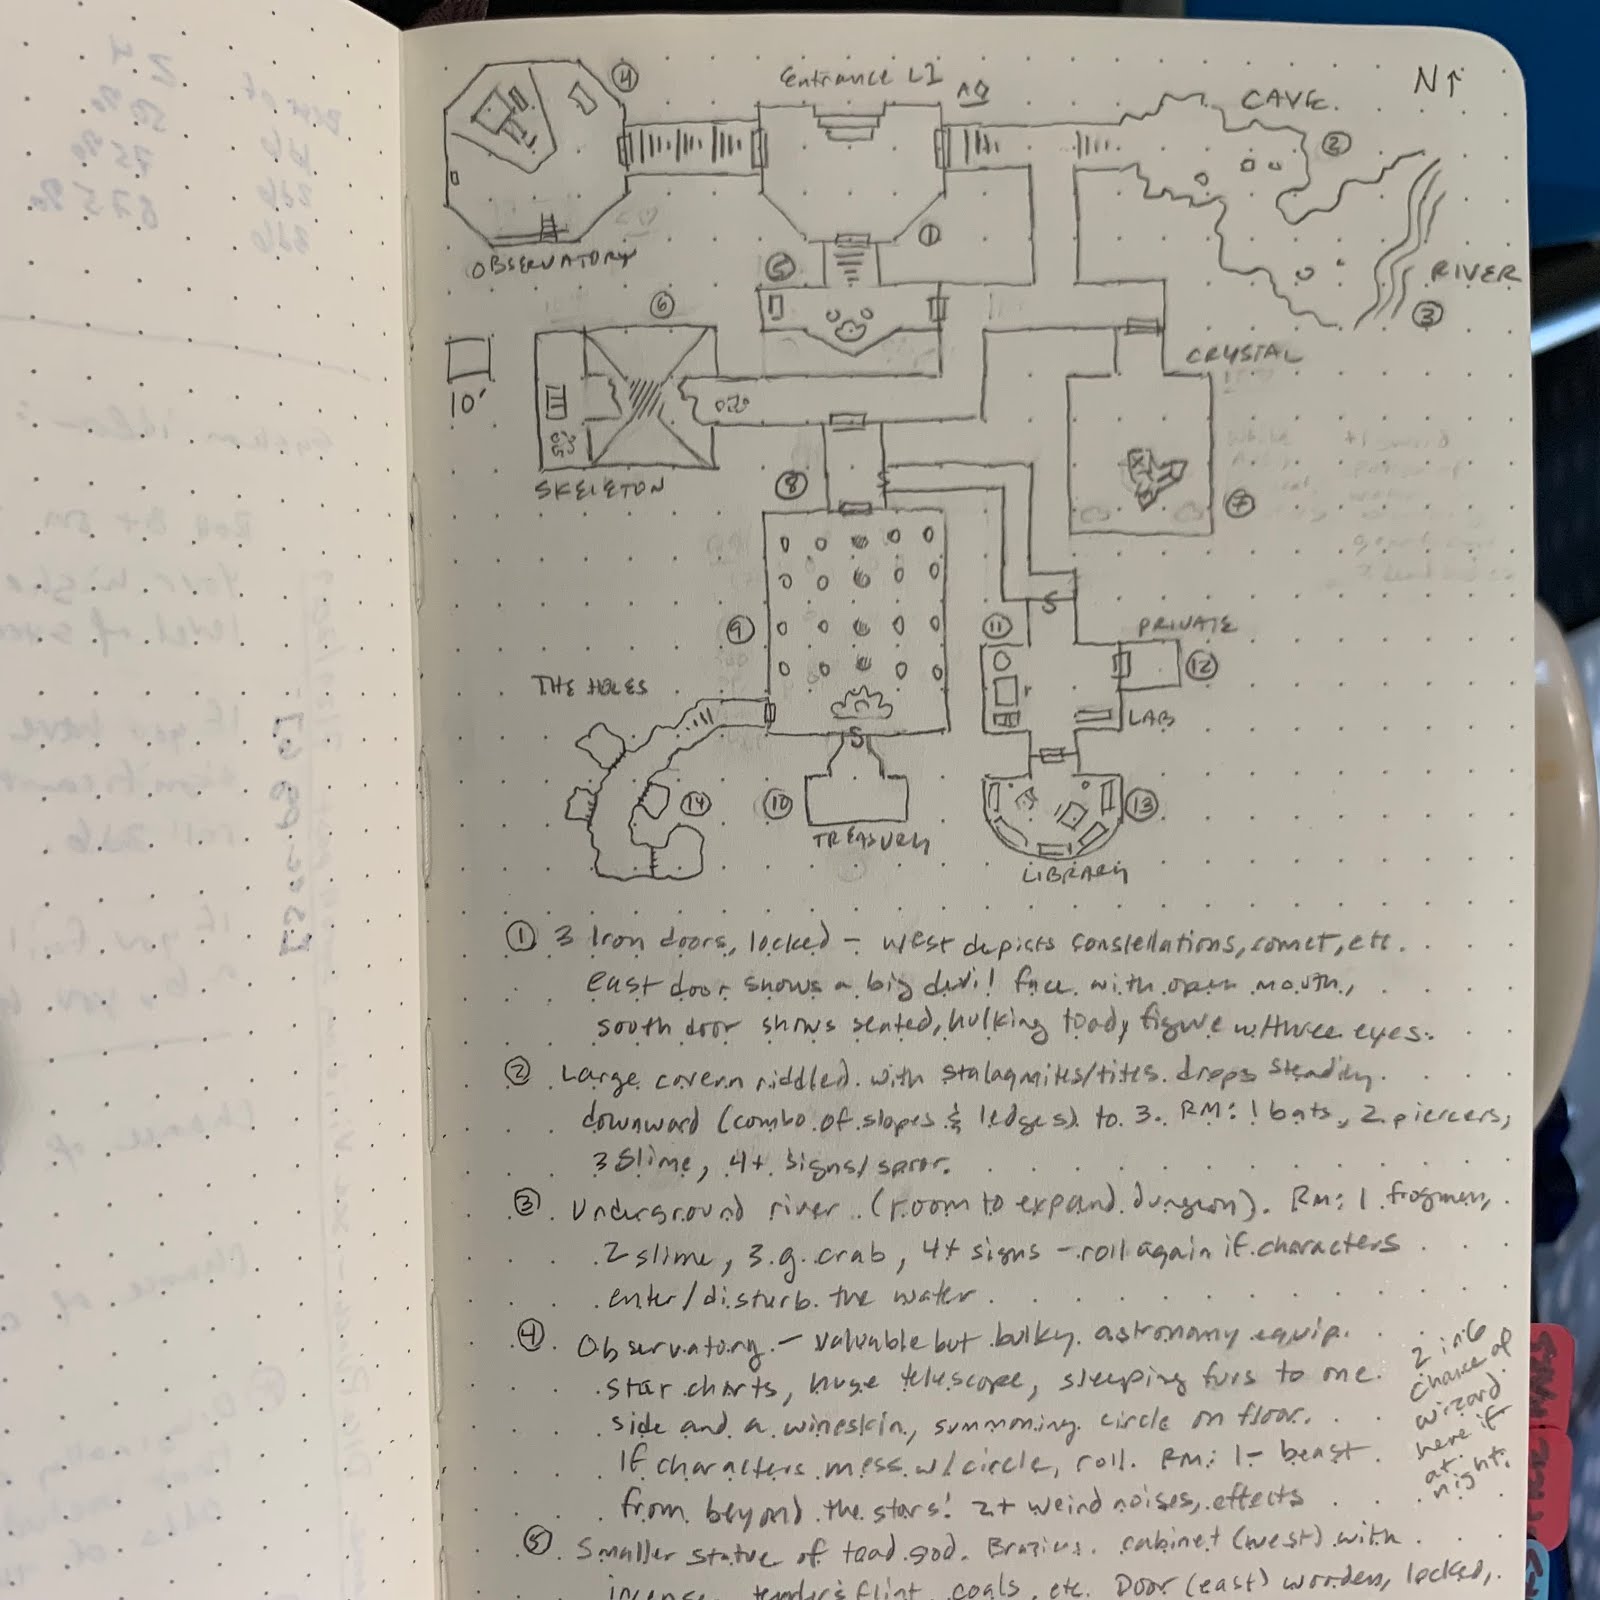 Entrance L1
N↑
CAVE
4
2
OBSERVATORY
1
5
RIVER
3
6
CRYSTAL
10'
SKELETON
8
7
9
11
PRIVATE
12
THE HOLES
S
S
LAB
14
10
13
TREASURY
LIBRARY
① 3 Iron doors, locked – west depicts constellations, comet, etc.
east door shows a big devil face with open mouth,
south door shows seated, hulking toady figure w/three eyes.
② Large cavern riddled with stalagmites/tites. drops steadily
downward (combo of slopes & ledges) to 3. RM: 1 bats, 2 piercers,
3 slime, 4+ signs/spoor.
③ Underground river (room to expand dungeon). RM: 1 frogmen,
2 slime, 3 g. crab, 4+ signs – roll again if characters
enter/disturb the water
④ Observatory – valuable but bulky astronomy equip.
star charts, huge telescope, sleeping furs to one
side and a wineskin, summoning circle on floor.
If characters mess w/circle, roll. RM: 1 – beast
from beyond the stars! 2+ weird noises, effects
2 in 6
chance of
wizard
here if
at
night.
⑤ Smaller statue of toad god. Braziers. cabinet (west) with
incense, flint, coals, etc. Door (east) wooden, locked,